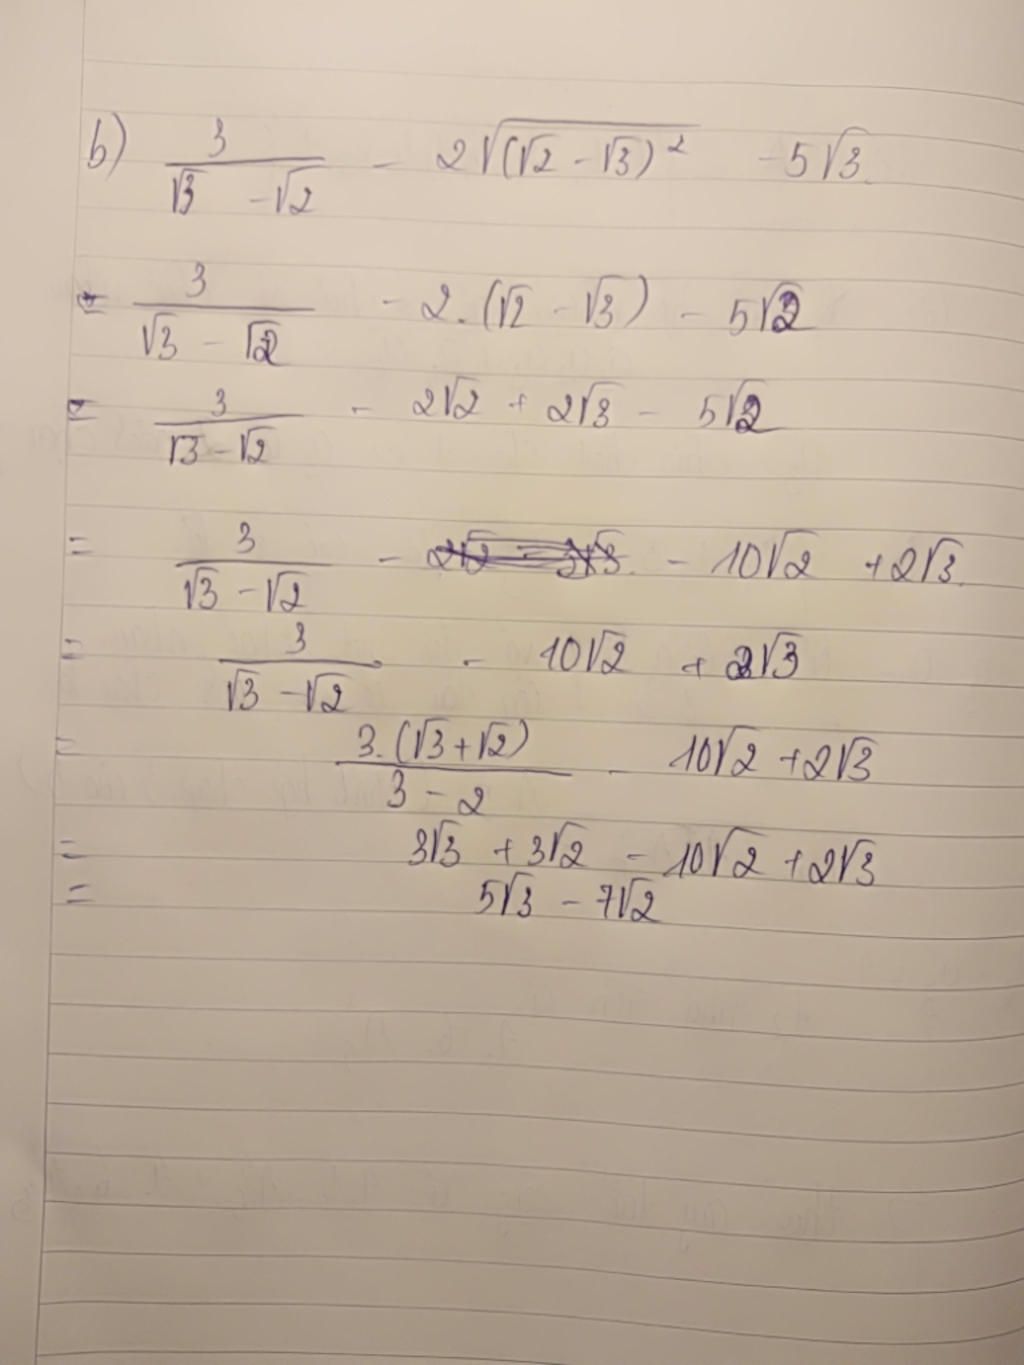 b) 3/(√3 - √2) - 2√((√2 - √3)²) - 5√3.
= 3/(√3 - √2) - 2.(√2 - √3) - 5√2
= 3/(√3 - √2) - 2√2 + 2√3 - 5√2
= 3/(√3 - √2) - - 10√2 + 2√3.
= 3/(√3 - √2) - 10√2 + 2√3
= 3.(√3 + √2)/(3 - 2) - 10√2 + 2√3
= 3√3 + 3√2 - 10√2 + 2√3
= 5√3 - 7√2